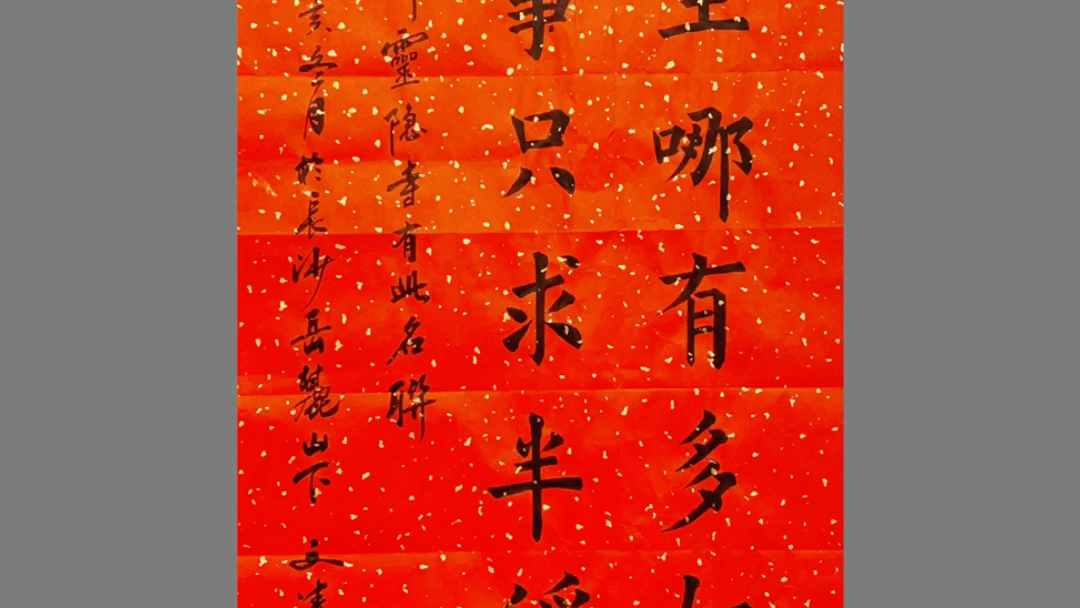 哪有多
事只求半
靈隐寺有此名聯
亥之二月於長沙岳麓山下 文